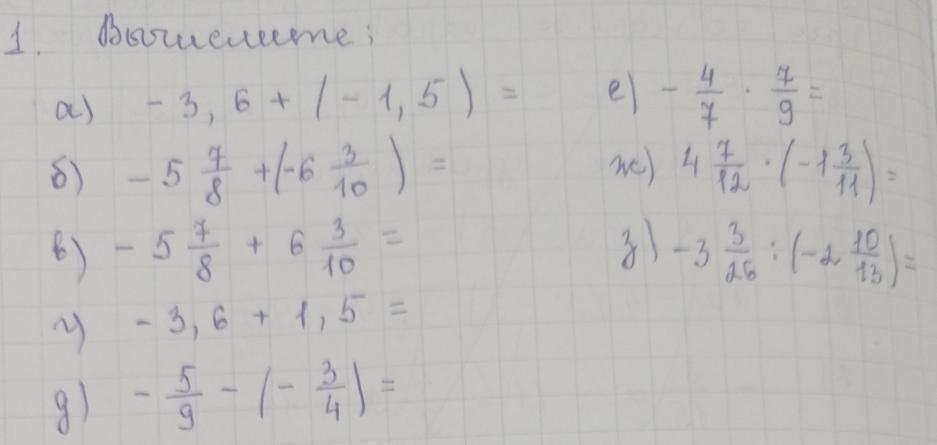 1. Вычислите:
а) -3,6 + (-1,5) =
б) -5 7/8 + (-6 3/10) =
в) -5 7/8 + 6 3/10 =
г) -3,6 + 1,5 =
д) -5/9 - (-3/4) =
е) -4/7 · 7/9 =
ж) 4 7/12 · (-1 3/11) =
з) -3 3/26 : (-2 10/13) =